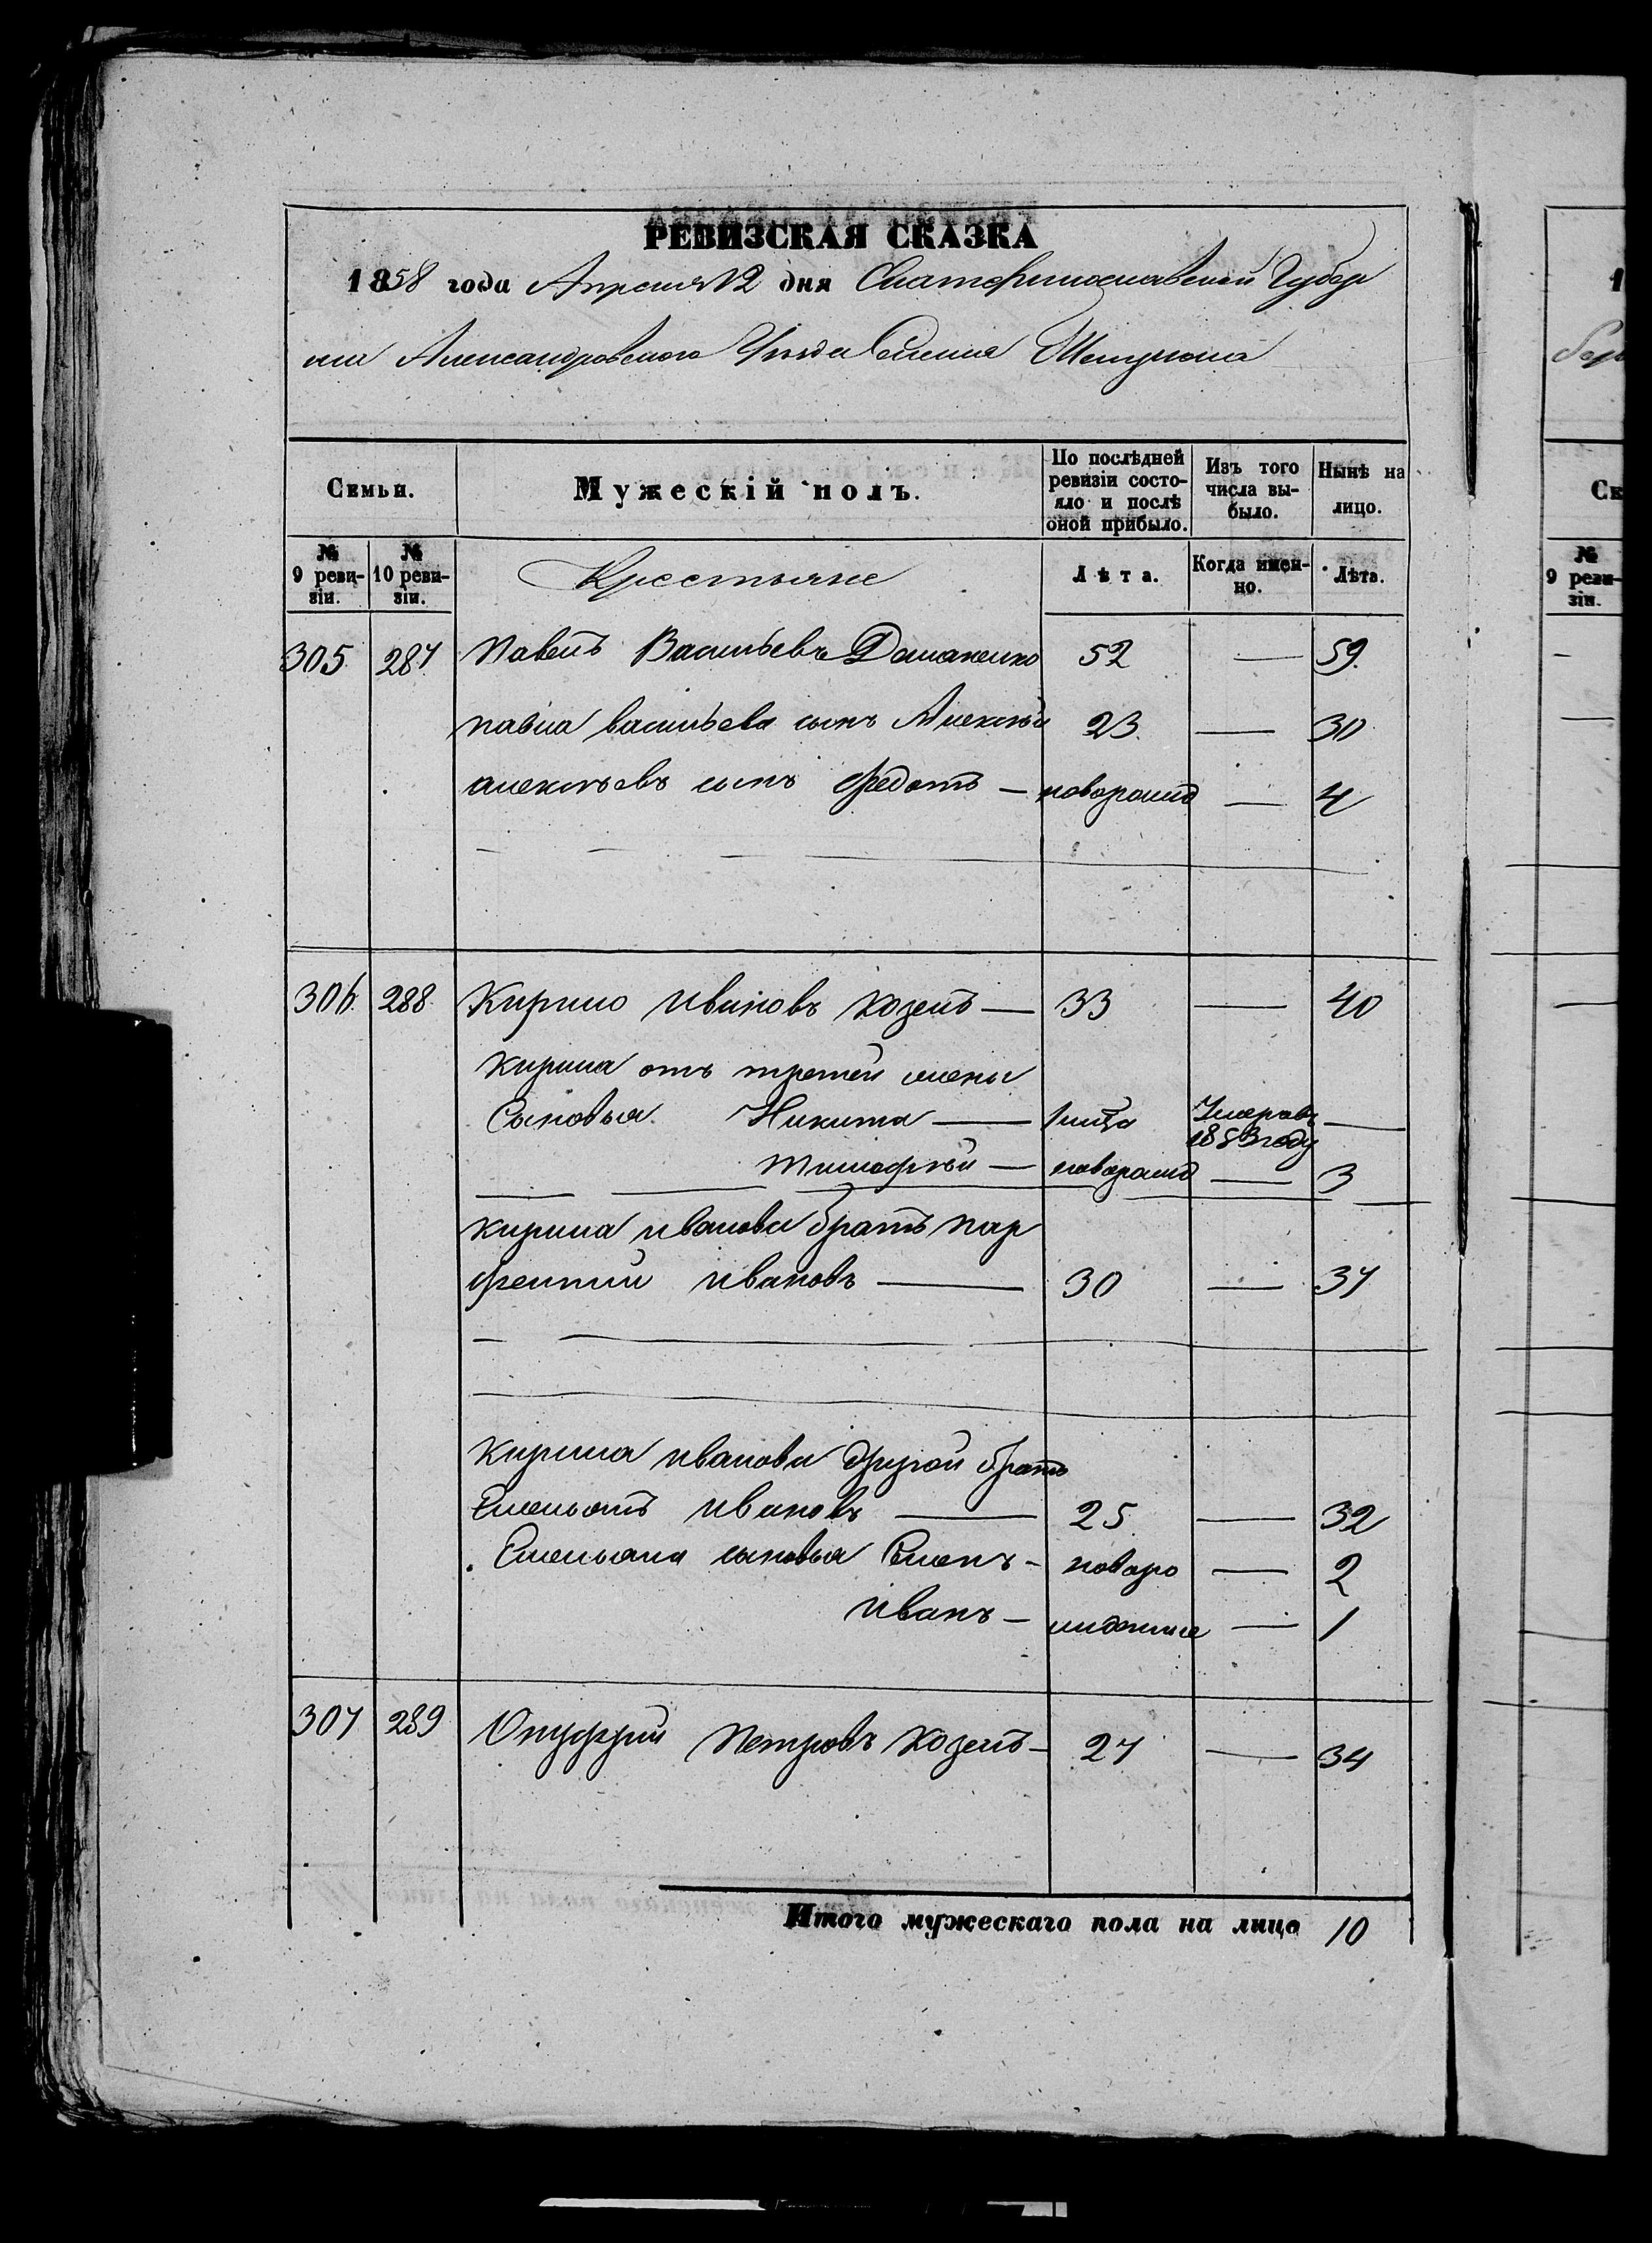 РЕВИЗСКАЯ СКАЗКА
1858 года Апреля 12 дня Екатеринославской Губер
нии Александровского Уезда Селения
Семьи. Мужескій полъ. По послѣдней ревизіи состояло и послѣ оной прибыло. Изъ того числа выбыло. Нынѣ на лицо.
№ 9 ревизіи. № 10 ревизіи. Крестьяне Лѣта. Когда именно. Лѣта.
305. 287. Павелъ Васильевъ Доманенко 52 — 59.
павла васильева сынъ Алексѣй 23. — 30
алексѣевъ сынъ Федотъ — новорожд — 4
306. 288. Кирило ивановъ Козелъ — 33 — 40
Кирила отъ третей жены
Сыновья Никита — 1 Умеръ въ —
1853 году
тимофѣй — новорожд — 3
Кирила иванова братъ пар
фентий ивановъ — 30 — 37
Кирила иванова другой братъ
Емельянъ ивановъ — 25. — 32
Емельяна сыновья Семенъ — новоро — 2
иванъ — жденные — 1
307 289 Онуфрий петровъ Козелъ — 27 — 34
Итого мужескаго пола на лицо 10
1
№ 9 ревизіи.